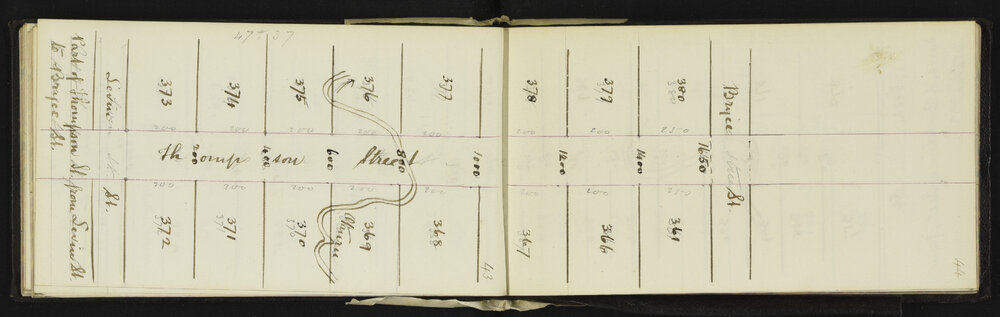 Part of Thompson St. from Levin St.
to Bryce St.
47+37
Levin St.
373
374
375
376
377
378
379
380
Bryce St.
200
200
200
200
200
200
200
250
Thompson Street
200
400
600
800
1000
1200
1400
1650
200
200
200
200
200
200
372
371
370
369
368
367
366
361
43
44